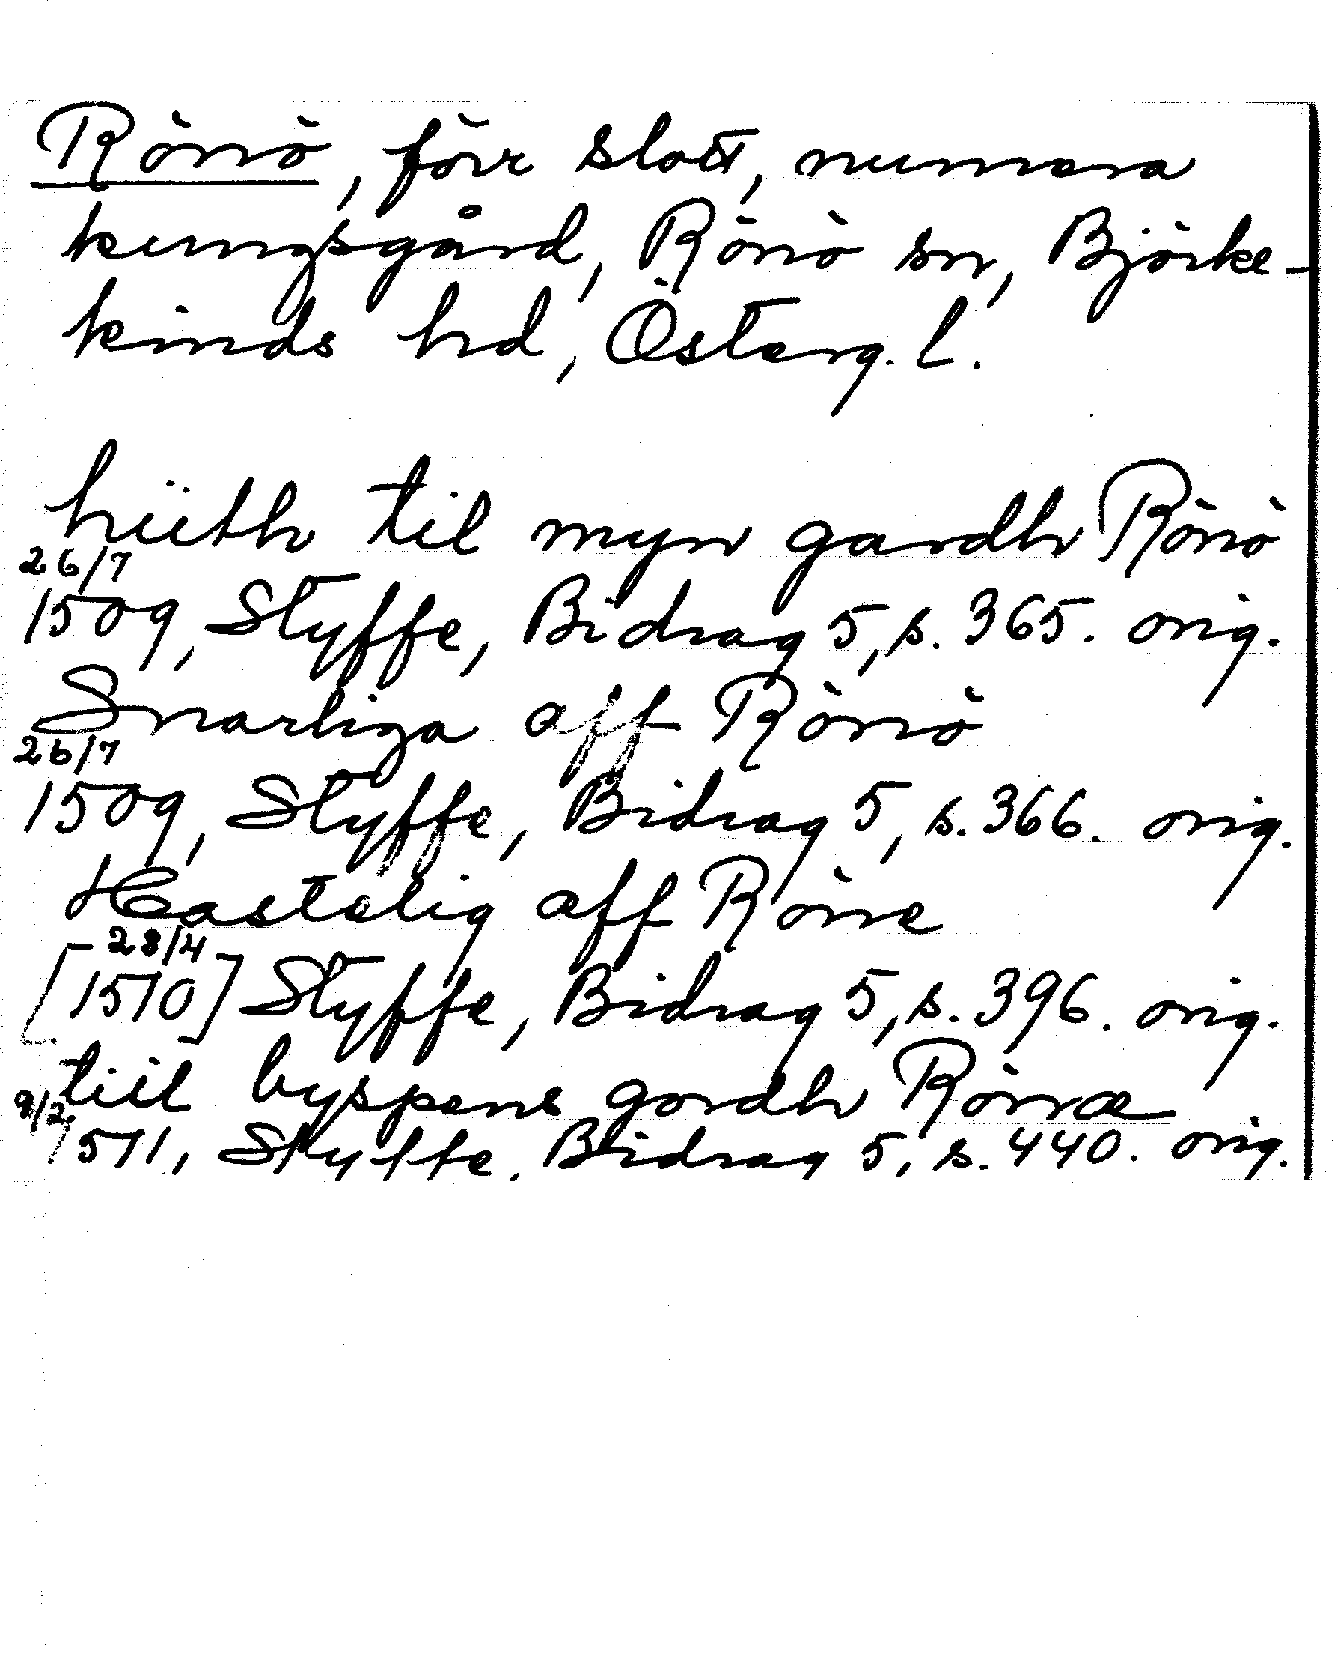 Rönö, förr slott, numera
kungsgård, Rönö sn, Björke-
kinds hd, Österg. l.
hiith til myn gardh Rönö
26/7
1509, Styffe, Bidrag 5, s. 365. orig.
Snarliga aff Rönö
26/7
1509, Styffe, Bidrag 5, s. 366. orig.
Hastelig aff Röne
[28/4
1510] Styffe, Bidrag 5, s. 396. orig.
tiil byspens gordh Rönæ
9/2
1511, Styffe, Bidrag 5, s. 440. orig.